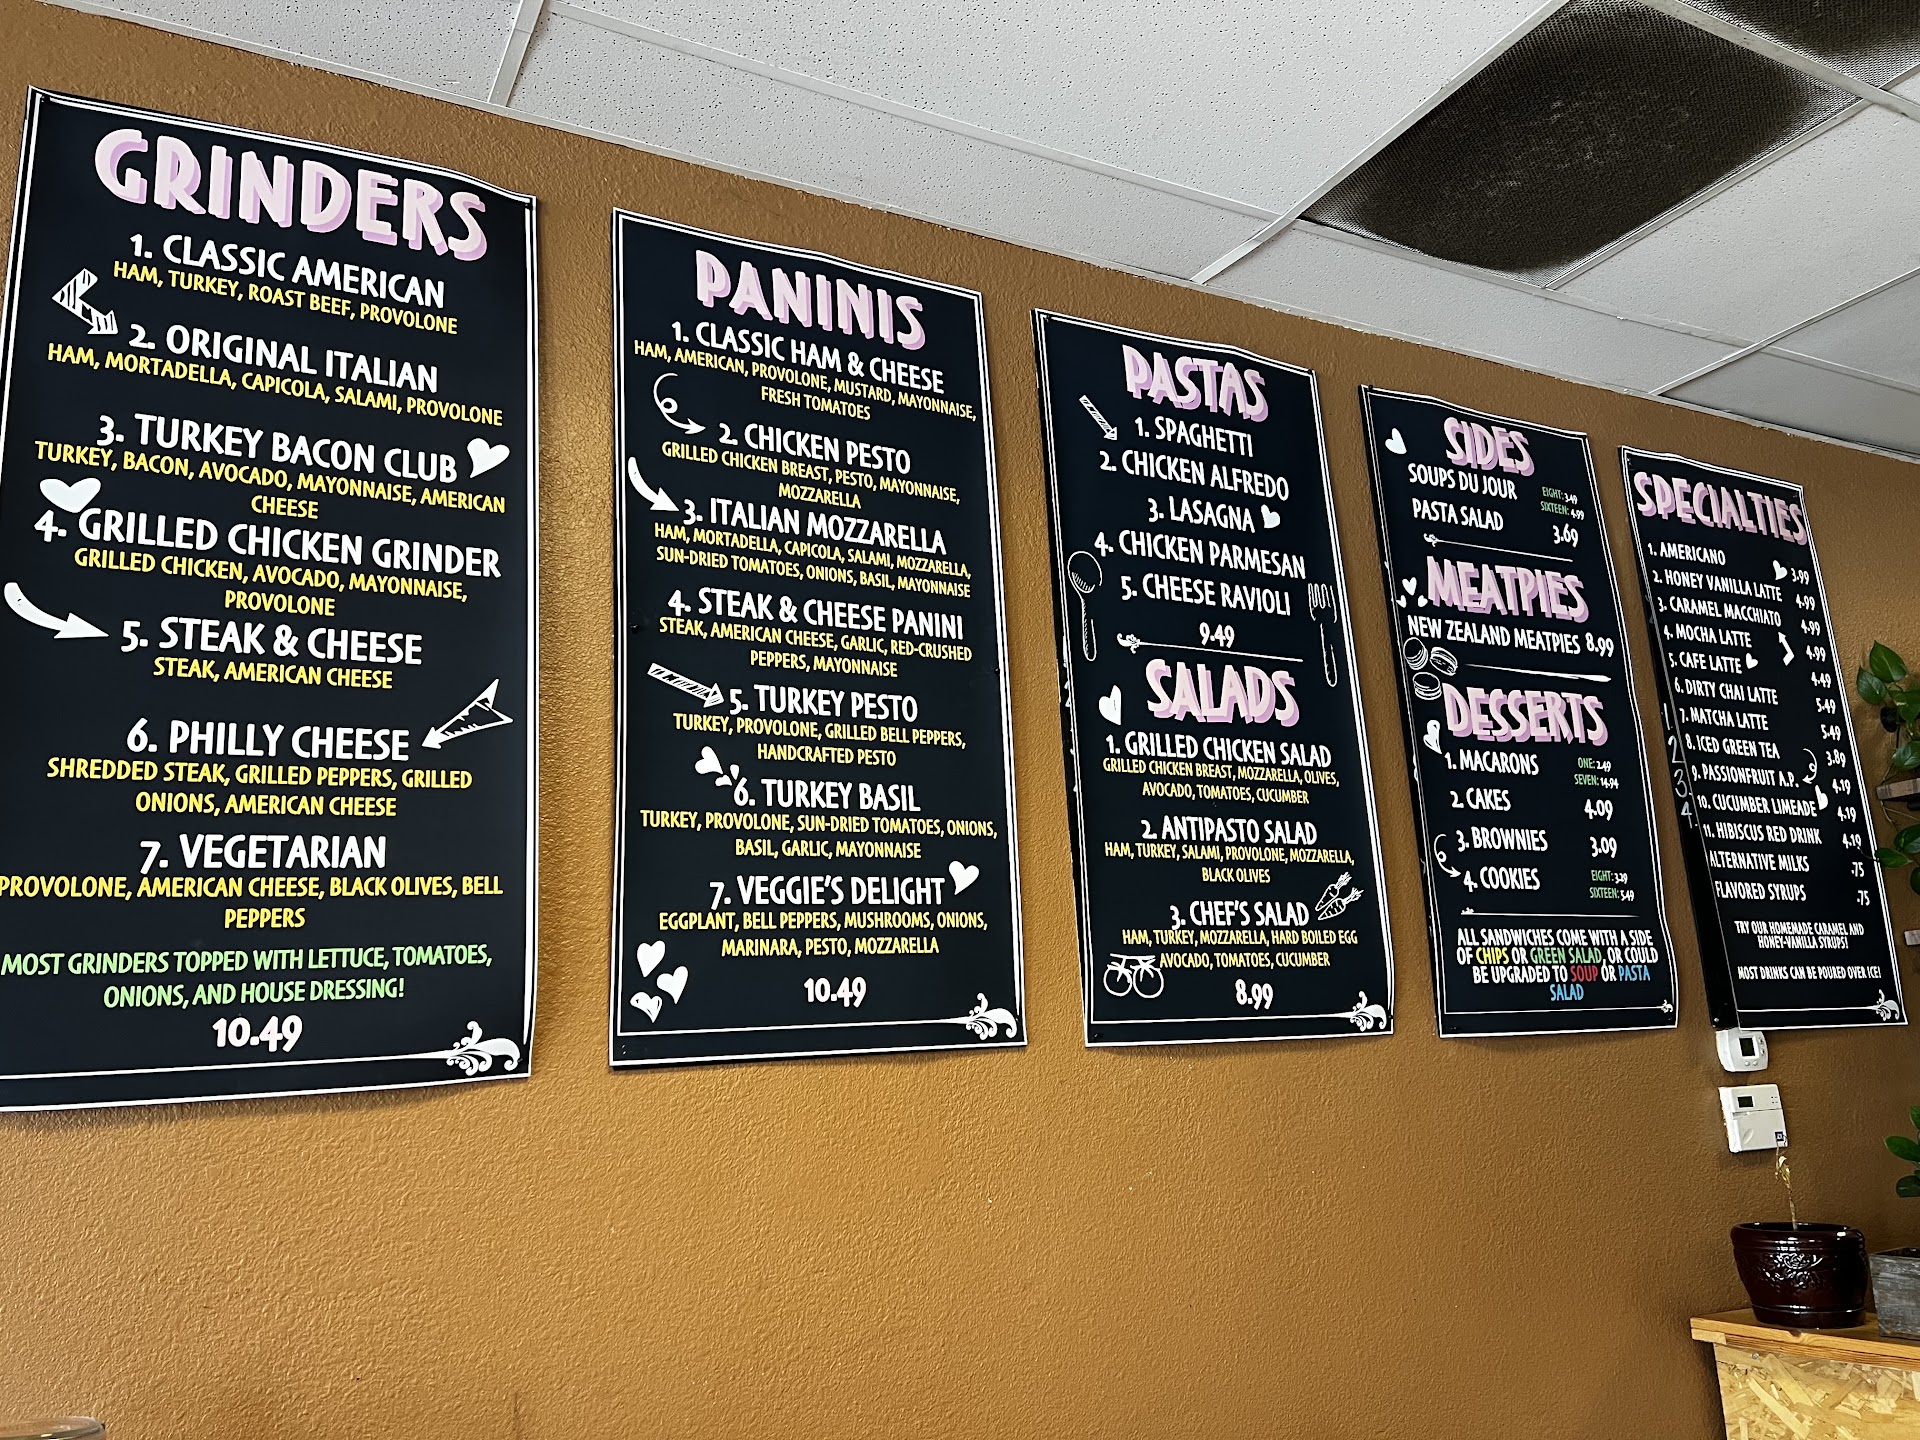 GRINDERS
1. CLASSIC AMERICAN
HAM, TURKEY, ROAST BEEF, PROVOLONE
2. ORIGINAL ITALIAN
HAM, MORTADELLA, CAPICOLA, SALAMI, PROVOLONE
3. TURKEY BACON CLUB
TURKEY, BACON, AVOCADO, MAYONNAISE, AMERICAN
CHEESE
4. GRILLED CHICKEN GRINDER
GRILLED CHICKEN, AVOCADO, MAYONNAISE,
PROVOLONE
5. STEAK & CHEESE
STEAK, AMERICAN CHEESE
6. PHILLY CHEESE
SHREDDED STEAK, GRILLED PEPPERS, GRILLED
ONIONS, AMERICAN CHEESE
7. VEGETARIAN
PROVOLONE, AMERICAN CHEESE, BLACK OLIVES, BELL
PEPPERS
MOST GRINDERS TOPPED WITH LETTUCE, TOMATOES,
ONIONS, AND HOUSE DRESSING!
10.49
PANINIS
1. CLASSIC HAM & CHEESE
HAM, AMERICAN, PROVOLONE, MUSTARD, MAYONNAISE,
FRESH TOMATOES
2. CHICKEN PESTO
GRILLED CHICKEN BREAST, PESTO, MAYONNAISE,
MOZZARELLA
3. ITALIAN MOZZARELLA
HAM, MORTADELLA, CAPICOLA, SALAMI, MOZZARELLA,
SUN-DRIED TOMATOES, ONIONS, BASIL, MAYONNAISE
4. STEAK & CHEESE PANINI
STEAK, AMERICAN CHEESE, GARLIC, RED-CRUSHED
PEPPERS, MAYONNAISE
5. TURKEY PESTO
TURKEY, PROVOLONE, GRILLED BELL PEPPERS,
HANDCRAFTED PESTO
6. TURKEY BASIL
TURKEY, PROVOLONE, SUN-DRIED TOMATOES, ONIONS,
BASIL, GARLIC, MAYONNAISE
7. VEGGIE'S DELIGHT
EGGPLANT, BELL PEPPERS, MUSHROOMS, ONIONS,
MARINARA, PESTO, MOZZARELLA
10.49
PASTAS
1. SPAGHETTI
2. CHICKEN ALFREDO
3. LASAGNA
4. CHICKEN PARMESAN
5. CHEESE RAVIOLI
9.49
SALADS
1. GRILLED CHICKEN SALAD
GRILLED CHICKEN BREAST, MOZZARELLA, OLIVES,
AVOCADO, TOMATOES, CUCUMBER
2. ANTIPASTO SALAD
HAM, TURKEY, SALAMI, PROVOLONE, MOZZARELLA,
BLACK OLIVES
3. CHEF'S SALAD
HAM, TURKEY, MOZZARELLA, HARD BOILED EGG
AVOCADO, TOMATOES, CUCUMBER
8.99
SIDES
SOUPS DU JOUR EIGHT: 3.49
SIXTEEN: 4.99
PASTA SALAD 3.69
MEATPIES
NEW ZEALAND MEATPIES 8.99
DESSERTS
1. MACARONS ONE: 2.49
SEVEN: 14.94
2. CAKES 4.09
3. BROWNIES 3.09
4. COOKIES EIGHT: 3.29
SIXTEEN: 5.49
ALL SANDWICHES COME WITH A SIDE
OF CHIPS OR GREEN SALAD, OR COULD
BE UPGRADED TO SOUP OR PASTA
SALAD
SPECIALTIES
1. AMERICANO 3.99
2. HONEY VANILLA LATTE 4.99
3. CARAMEL MACCHIATO 4.99
4. MOCHA LATTE 4.99
5. CAFE LATTE 4.49
6. DIRTY CHAI LATTE 5.49
7. MATCHA LATTE 5.49
8. ICED GREEN TEA 3.89
9. PASSIONFRUIT A.P. 4.19
10. CUCUMBER LIMEADE 4.19
11. HIBISCUS RED DRINK 4.19
ALTERNATIVE MILKS .75
FLAVORED SYRUPS .75
TRY OUR HOMEMADE CARAMEL AND
HONEY-VANILLA SYRUPS!
MOST DRINKS CAN BE POURED OVER ICE!